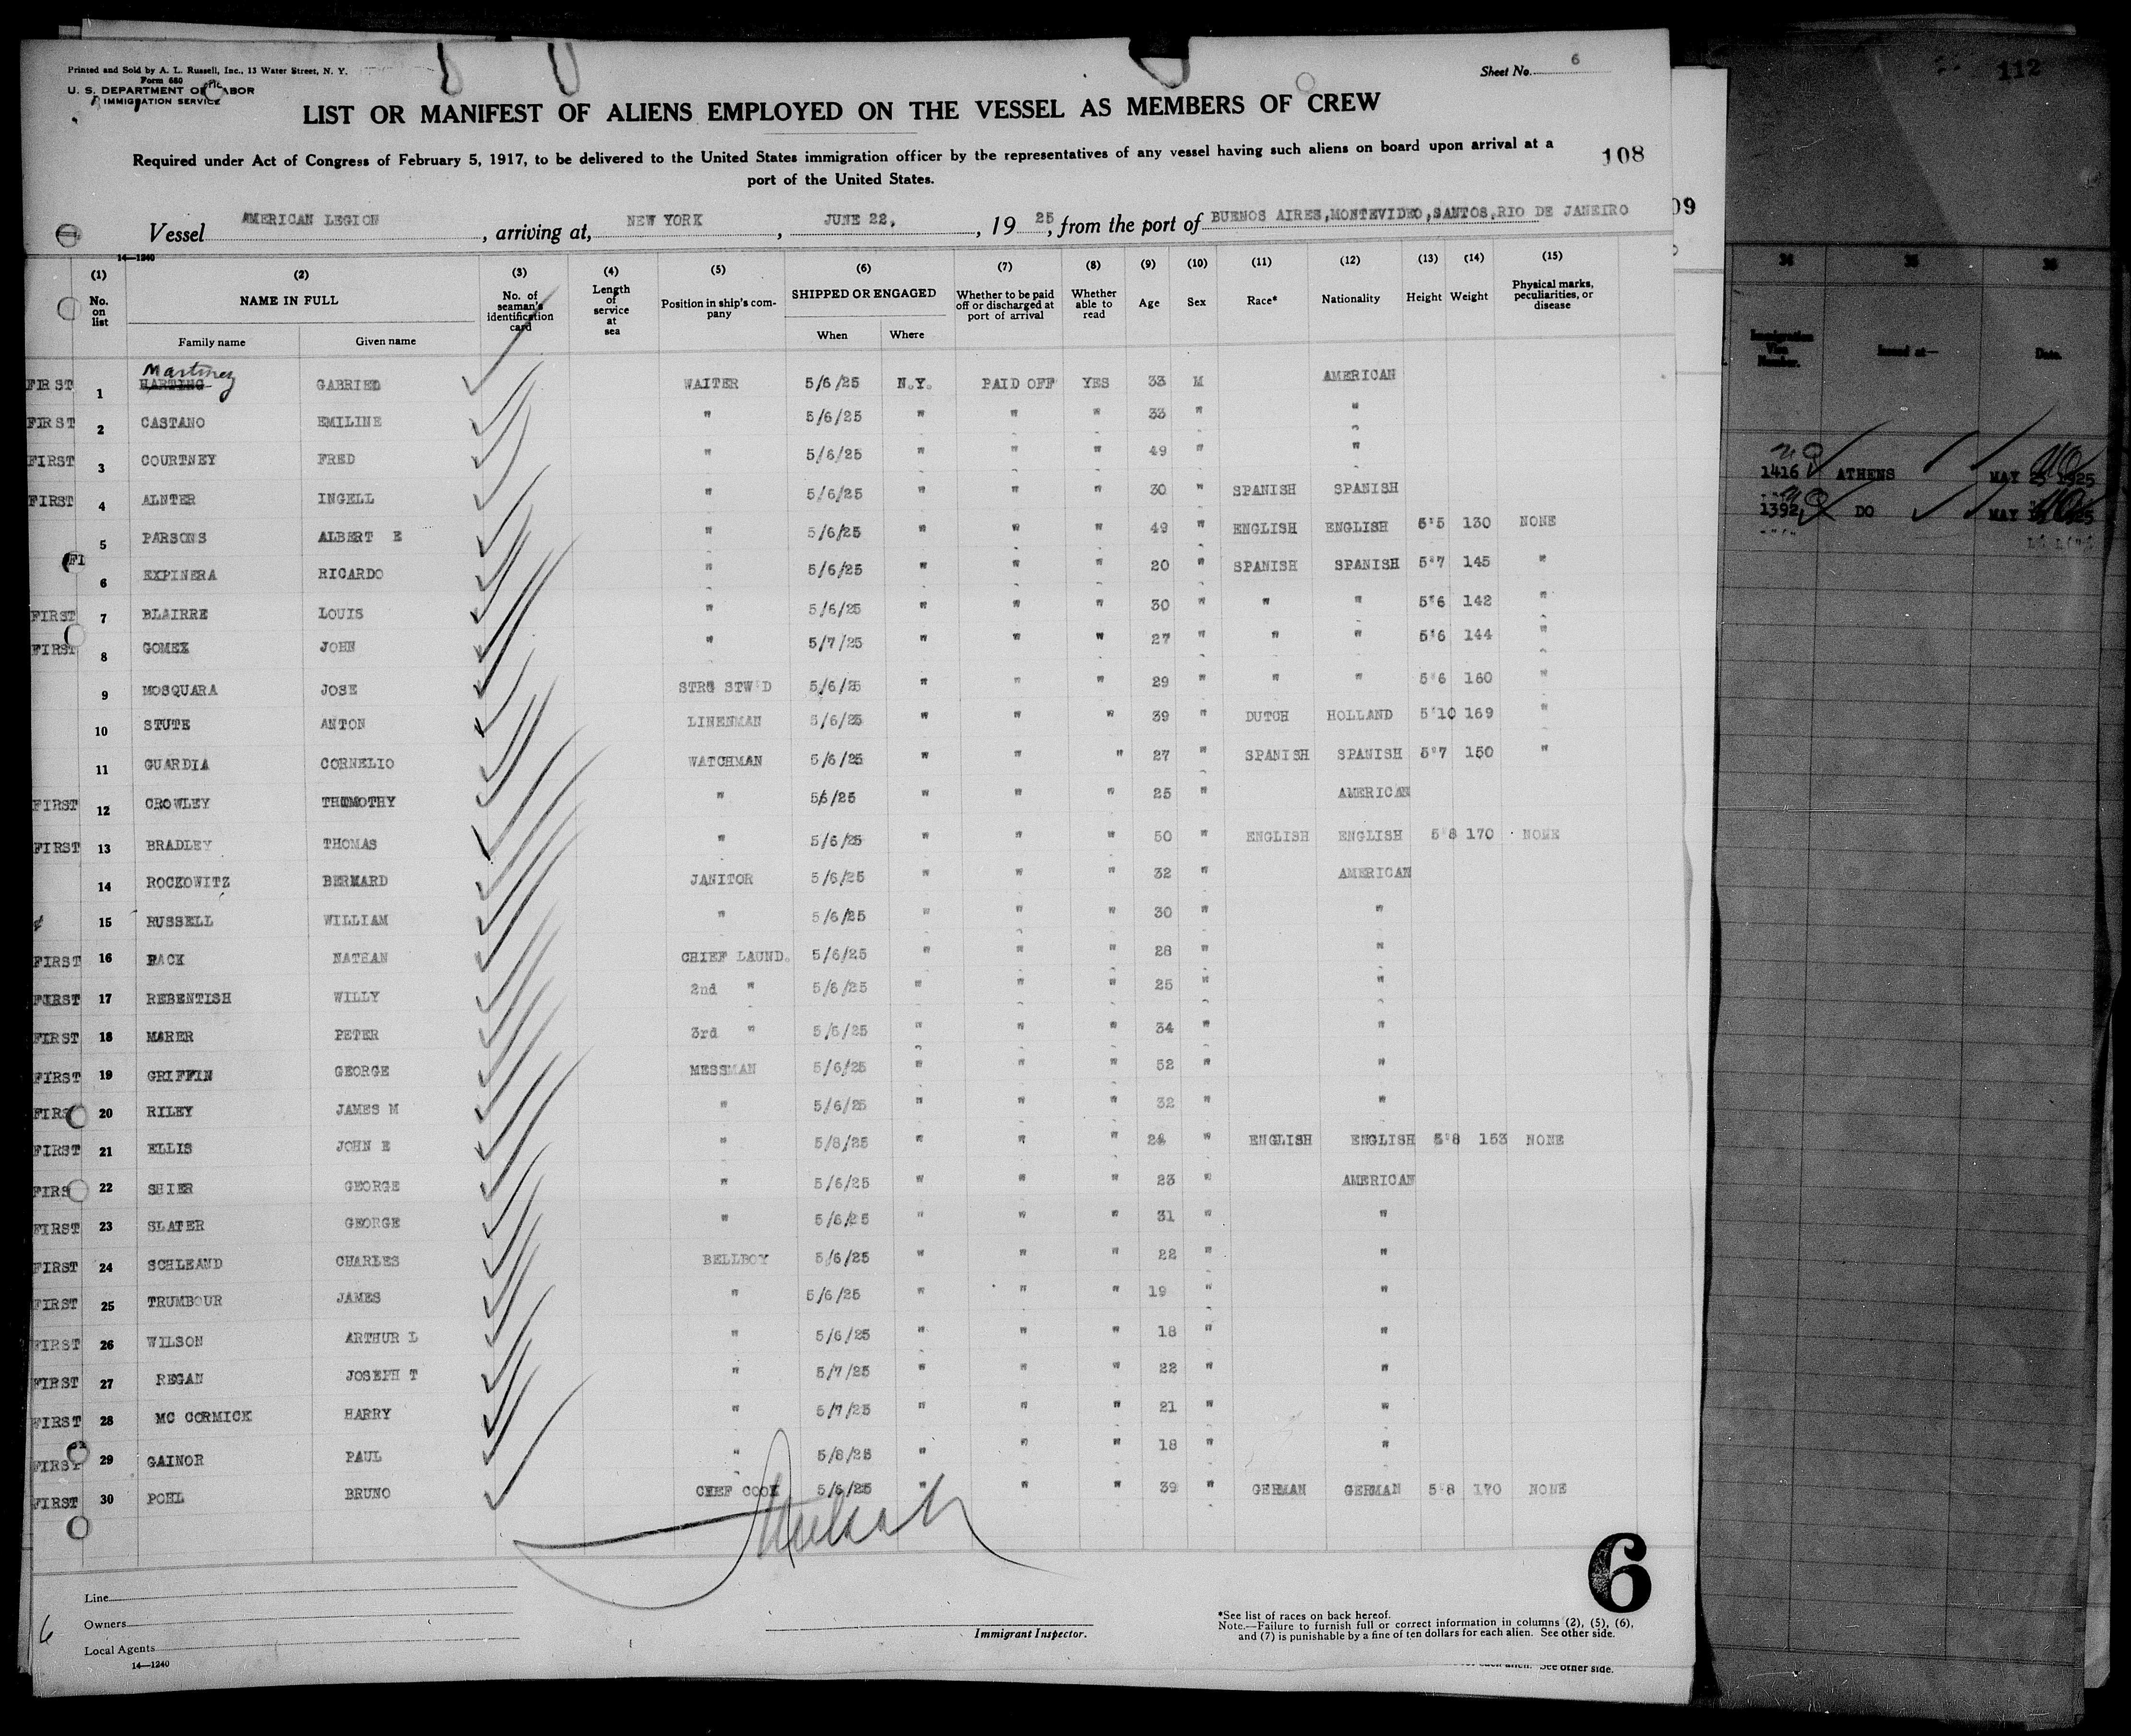 Printed and Sold by A. L. Russell, Inc., 13 Water Street, N. Y.
Form 680
U. S. DEPARTMENT OF LABOR
IMMIGRATION SERVICE
Sheet No. 6
112
LIST OR MANIFEST OF ALIENS EMPLOYED ON THE VESSEL AS MEMBERS OF CREW
Required under Act of Congress of February 5, 1917, to be delivered to the United States immigration officer by the representatives of any vessel having such aliens on board upon arrival at a
port of the United States.
108
09
Vessel AMERICAN LEGION, arriving at, NEW YORK, JUNE 22, 1925, from the port of BUENOS AIRES,MONTEVIDEO,SANTOS,RIO DE JANEIRO
14—1240
(1) (2) (3) (4) (5) (6) (7) (8) (9) (10) (11) (12) (13) (14) (15)
No. on list NAME IN FULL No. of seaman's identification card Length of service at sea Position in ship's company SHIPPED OR ENGAGED Whether to be paid off or discharged at port of arrival Whether able to read Age Sex Race* Nationality Height Weight Physical marks, peculiarities, or disease
Family name Given name When Where
34 35 36
Immigration Visa Number. Issued at— Date.
Martinez
FIRST 1 HARTING GABRIED WAITER 5/6/25 N.Y. PAID OFF YES 33 M AMERICAN
FIRST 2 CASTANO EMILINE " 5/6/25 " " " 33 " "
FIRST 3 COURTNEY FRED " 5/6/25 " " " 49 " "
FIRST 4 ALNTER INGELL " 5/6/25 " " " 30 " SPANISH SPANISH
5 PARSONS ALBERT E " 5/6/25 " " " 49 " ENGLISH ENGLISH 5'5 130 NONE
FI 6 EXPINERA RICARDO " 5/6/25 " " " 20 " SPANISH SPANISH 5'7 145 "
FIRST 7 BLAIRRE LOUIS " 5/6/25 " " " 30 " " " 5'6 142 "
FIRST 8 GOMEZ JOHN " 5/7/25 " " " 27 " " " 5'6 144 "
9 MOSQUARA JOSE STRG STW'D 5/6/25 " " " 29 " " " 5'6 160 "
10 STUTE ANTON LINENMAN 5/6/25 " " " 39 " DUTCH HOLLAND 5'10 169 "
11 GUARDIA CORNELIO WATCHMAN 5/6/25 " " " 27 " SPANISH SPANISH 5'7 150 "
FIRST 12 CROWLEY THIMOTHY " 5/6/25 " " " 25 " AMERICAN
FIRST 13 BRADLEY THOMAS " 5/6/25 " " " 50 " ENGLISH ENGLISH 5'8 170 NONE
14 ROCKOWITZ BERNARD JANITOR 5/6/25 " " " 32 " AMERICAN
15 RUSSELL WILLIAM " 5/6/25 " " " 30 " "
FIRST 16 PACK NATHAN CHIEF LAUND. 5/6/25 " " " 28 " "
FIRST 17 REBENTISH WILLY 2nd " 5/6/25 " " " 25 " "
FIRST 18 MARER PETER 3rd " 5/6/25 " " " 34 " "
FIRST 19 GRIFFIN GEORGE MESSMAN 5/6/25 " " " 52 " "
FIRS 20 RILEY JAMES M " 5/6/25 " " " 32 " "
FIRST 21 ELLIS JOHN E " 5/8/25 " " " " ENGLISH ENGLISH 5'8 153 NONE
FIRS 22 SHIER GEORGE " 5/6/25 " " " 23 " AMERICAN
FIRST 23 SLATER GEORGE " 5/6/25 " " " 31 " "
FIRST 24 SCHLEAND CHARLES BELLBOY 5/6/25 " " " 22 " "
FIRST 25 TRUMBOUR JAMES " 5/6/25 " " " 19 " "
FIRST 26 WILSON ARTHUR L " 5/6/25 " " " 18 " "
FIRST 27 REGAN JOSEPH T " 5/7/25 " " " 22 " "
FIRST 28 MC CORMICK HARRY " 5/7/25 " " " 21 " "
FIRST 29 GAINOR PAUL " 5/8/25 " " " 18 " "
FIRST 30 POHL BRUNO CHEF COOK 5/6/25 " " " 39 " GERMAN GERMAN 5'8 170 NONE
1416 ATHENS MAY 25 1925
1392 DO MAY
6
Line
Owners
Local Agents
14—1240
Immigrant Inspector.
*See list of races on back hereof.
Note.—Failure to furnish full or correct information in columns (2), (5), (6),
and (7) is punishable by a fine of ten dollars for each alien. See other side.
See other side.
6